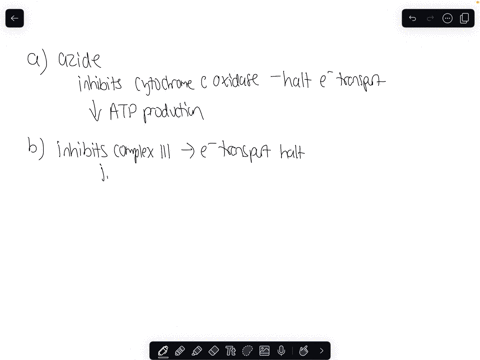 a) azide
inhibits cytochrome c oxidase - halt e⁻ transport
↓ ATP production
b) inhibits complex III → e⁻ transport halt
j.